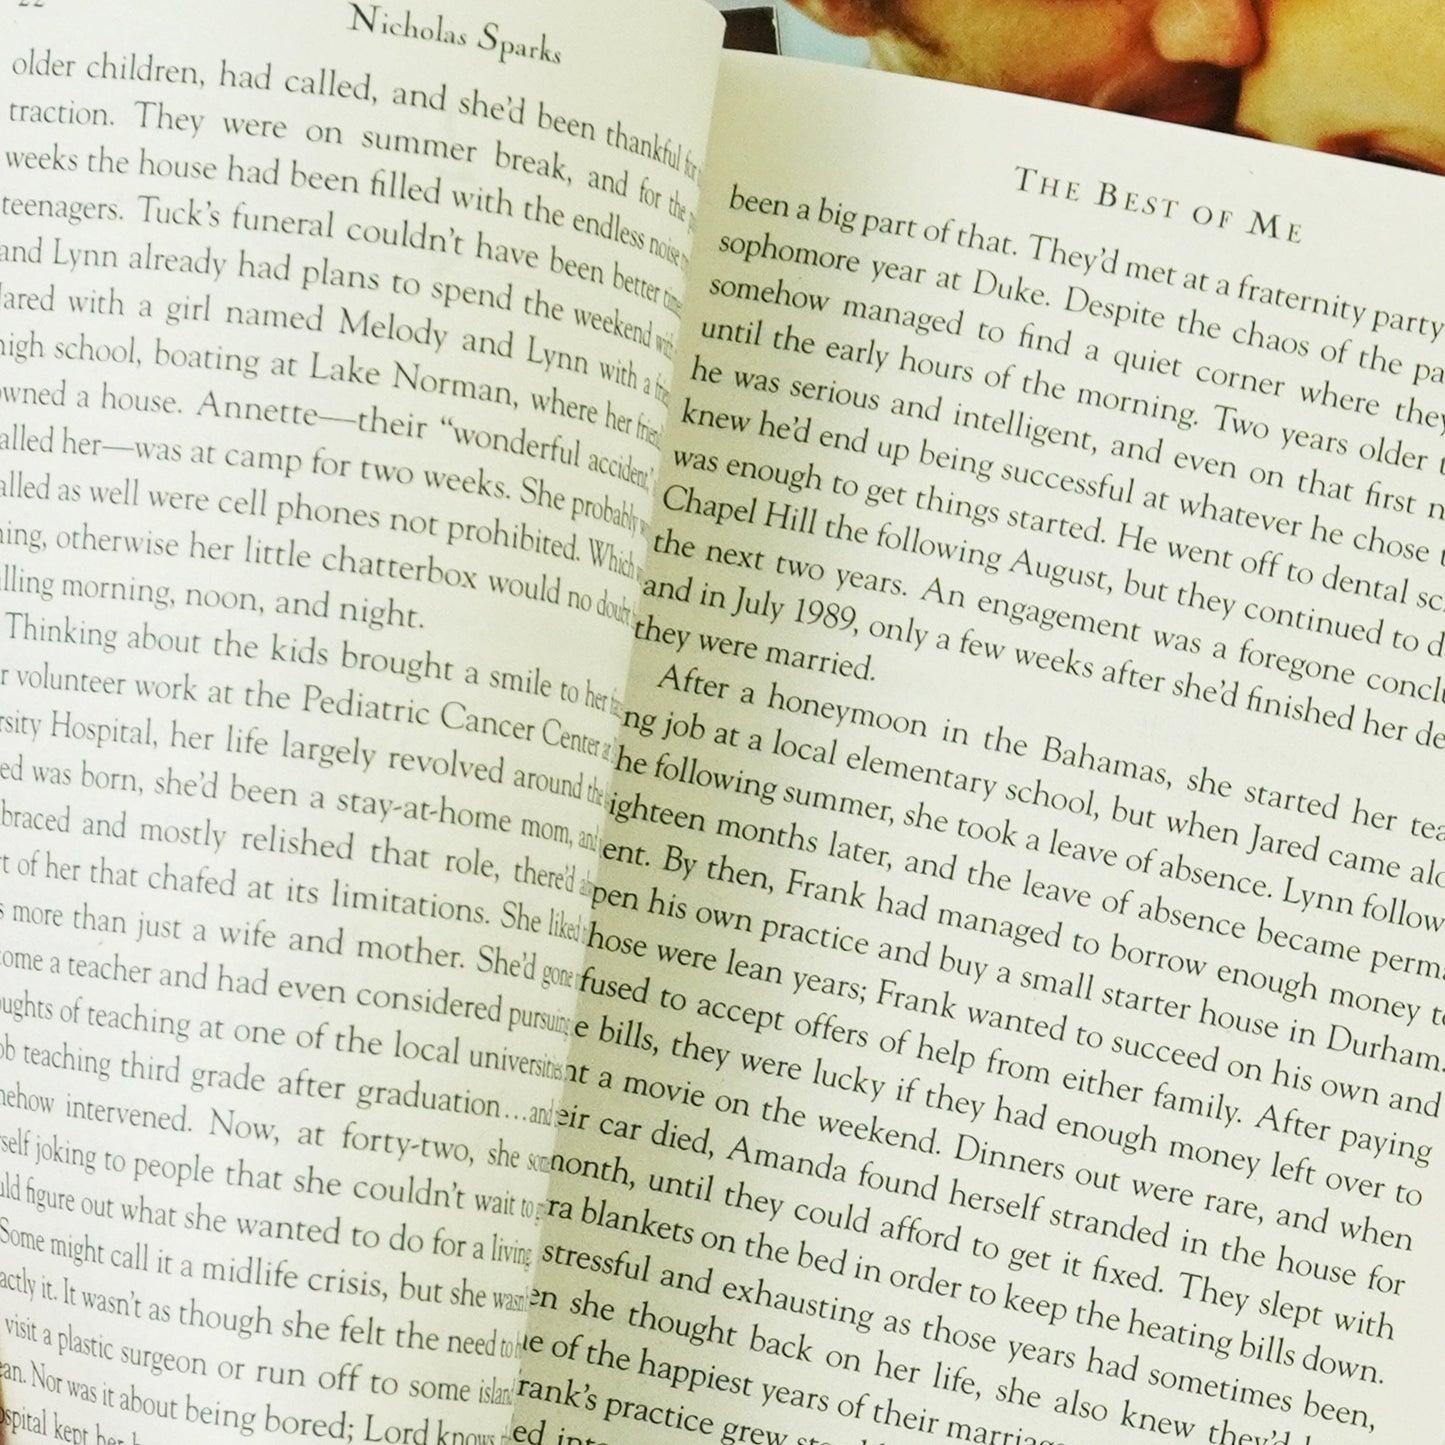 22
Nicholas Sparks
older children, had called, and she'd been thankful for
traction. They were on summer break, and for the
weeks the house had been filled with the endless noise
teenagers. Tuck's funeral couldn't have been better
and Lynn already had plans to spend the weekend
Jared with a girl named Melody and Lynn with a
high school, boating at Lake Norman, where her
owned a house. Annette—their "wonderful accident,"
called her—was at camp for two weeks. She probably
called as well were cell phones not prohibited. Which
otherwise her little chatterbox would no doubt
morning, noon, and night.
Thinking about the kids brought a smile to her
volunteer work at the Pediatric Cancer Center
Hospital, her life largely revolved around the
was born, she'd been a stay-at-home mom, and
and mostly relished that role, there'd
of her that chafed at its limitations. She liked
more than just a wife and mother. She'd gone
a teacher and had even considered pursuing
of teaching at one of the local universities.
teaching third grade after graduation...and
intervened. Now, at forty-two, she
joking to people that she couldn't wait to
figure out what she wanted to do for a living.
Some might call it a midlife crisis, but she wasn't
it. It wasn't as though she felt the need to
visit a plastic surgeon or run off to some island
Nor was it about being bored; Lord knows
kept her
The Best of Me
been a big part of that. They'd met at a fraternity party
sophomore year at Duke. Despite the chaos of the
somehow managed to find a quiet corner where they
until the early hours of the morning. Two years older
he was serious and intelligent, and even on that first
knew he'd end up being successful at whatever he chose
was enough to get things started. He went off to dental
Chapel Hill the following August, but they continued to
the next two years. An engagement was a foregone
and in July 1989, only a few weeks after she'd finished her
they were married.
After a honeymoon in the Bahamas, she started her
job at a local elementary school, but when Jared came
the following summer, she took a leave of absence. Lynn
eighteen months later, and the leave of absence became
By then, Frank had managed to borrow enough money
his own practice and buy a small starter house in Durham.
Those were lean years; Frank wanted to succeed on his own and
to accept offers of help from either family. After paying
bills, they were lucky if they had enough money left over to
a movie on the weekend. Dinners out were rare, and when
their car died, Amanda found herself stranded in the house for
month, until they could afford to get it fixed. They slept with
blankets on the bed in order to keep the heating bills down.
stressful and exhausting as those years had sometimes been,
she thought back on her life, she also knew they'd
of the happiest years of their
Frank's practice grew